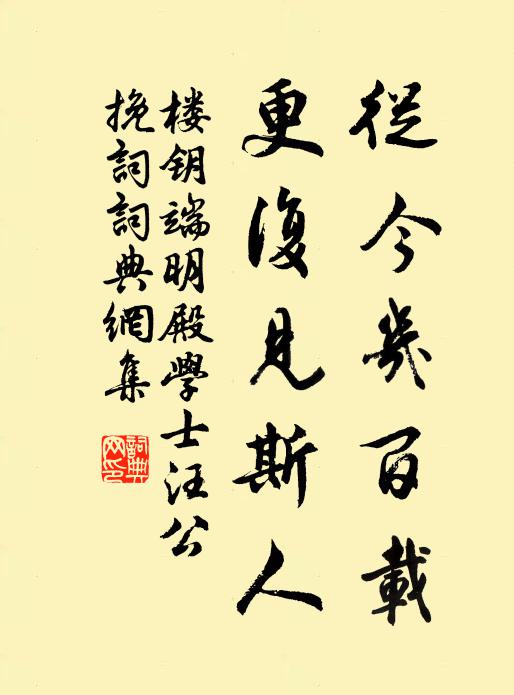 從今幾百載
更復見斯人
楼钥端明殿學士汪公
挽詞詞典網集
詞典
网印